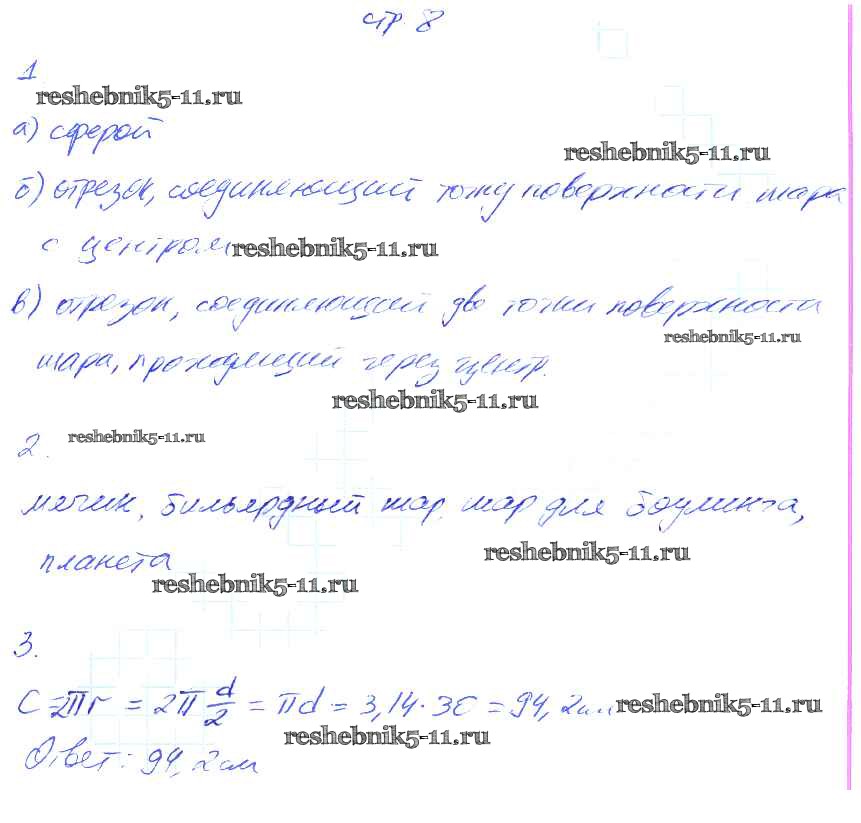 стр. 8
1.
reshebnik5-11.ru
а) сферой
reshebnik5-11.ru
б) отрезок, соединяющий точку поверхности шара
с центром reshebnik5-11.ru
в) отрезок, соединяющий две точки поверхности
reshebnik5-11.ru
шара, проходящий через центр.
reshebnik5-11.ru
2. reshebnik5-11.ru
мячик, бильярдный шар, шар для боулинга,
планета reshebnik5-11.ru
reshebnik5-11.ru
3.
C = 2πr = 2π d/2 = πd = 3,14 · 30 = 94,2 см reshebnik5-11.ru
reshebnik5-11.ru
Ответ: 94,2 см